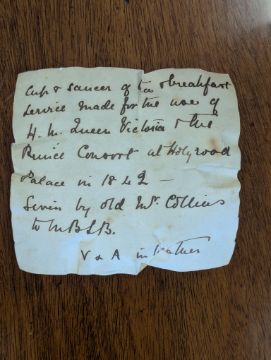 Cup & saucer of tea & breakfast
service made for the use of
H. M. Queen Victoria & the
Prince Consort at Holyrood
Palace in 1842 —
Given by old Mr. Collins
to M.B.L.B.
V & A in